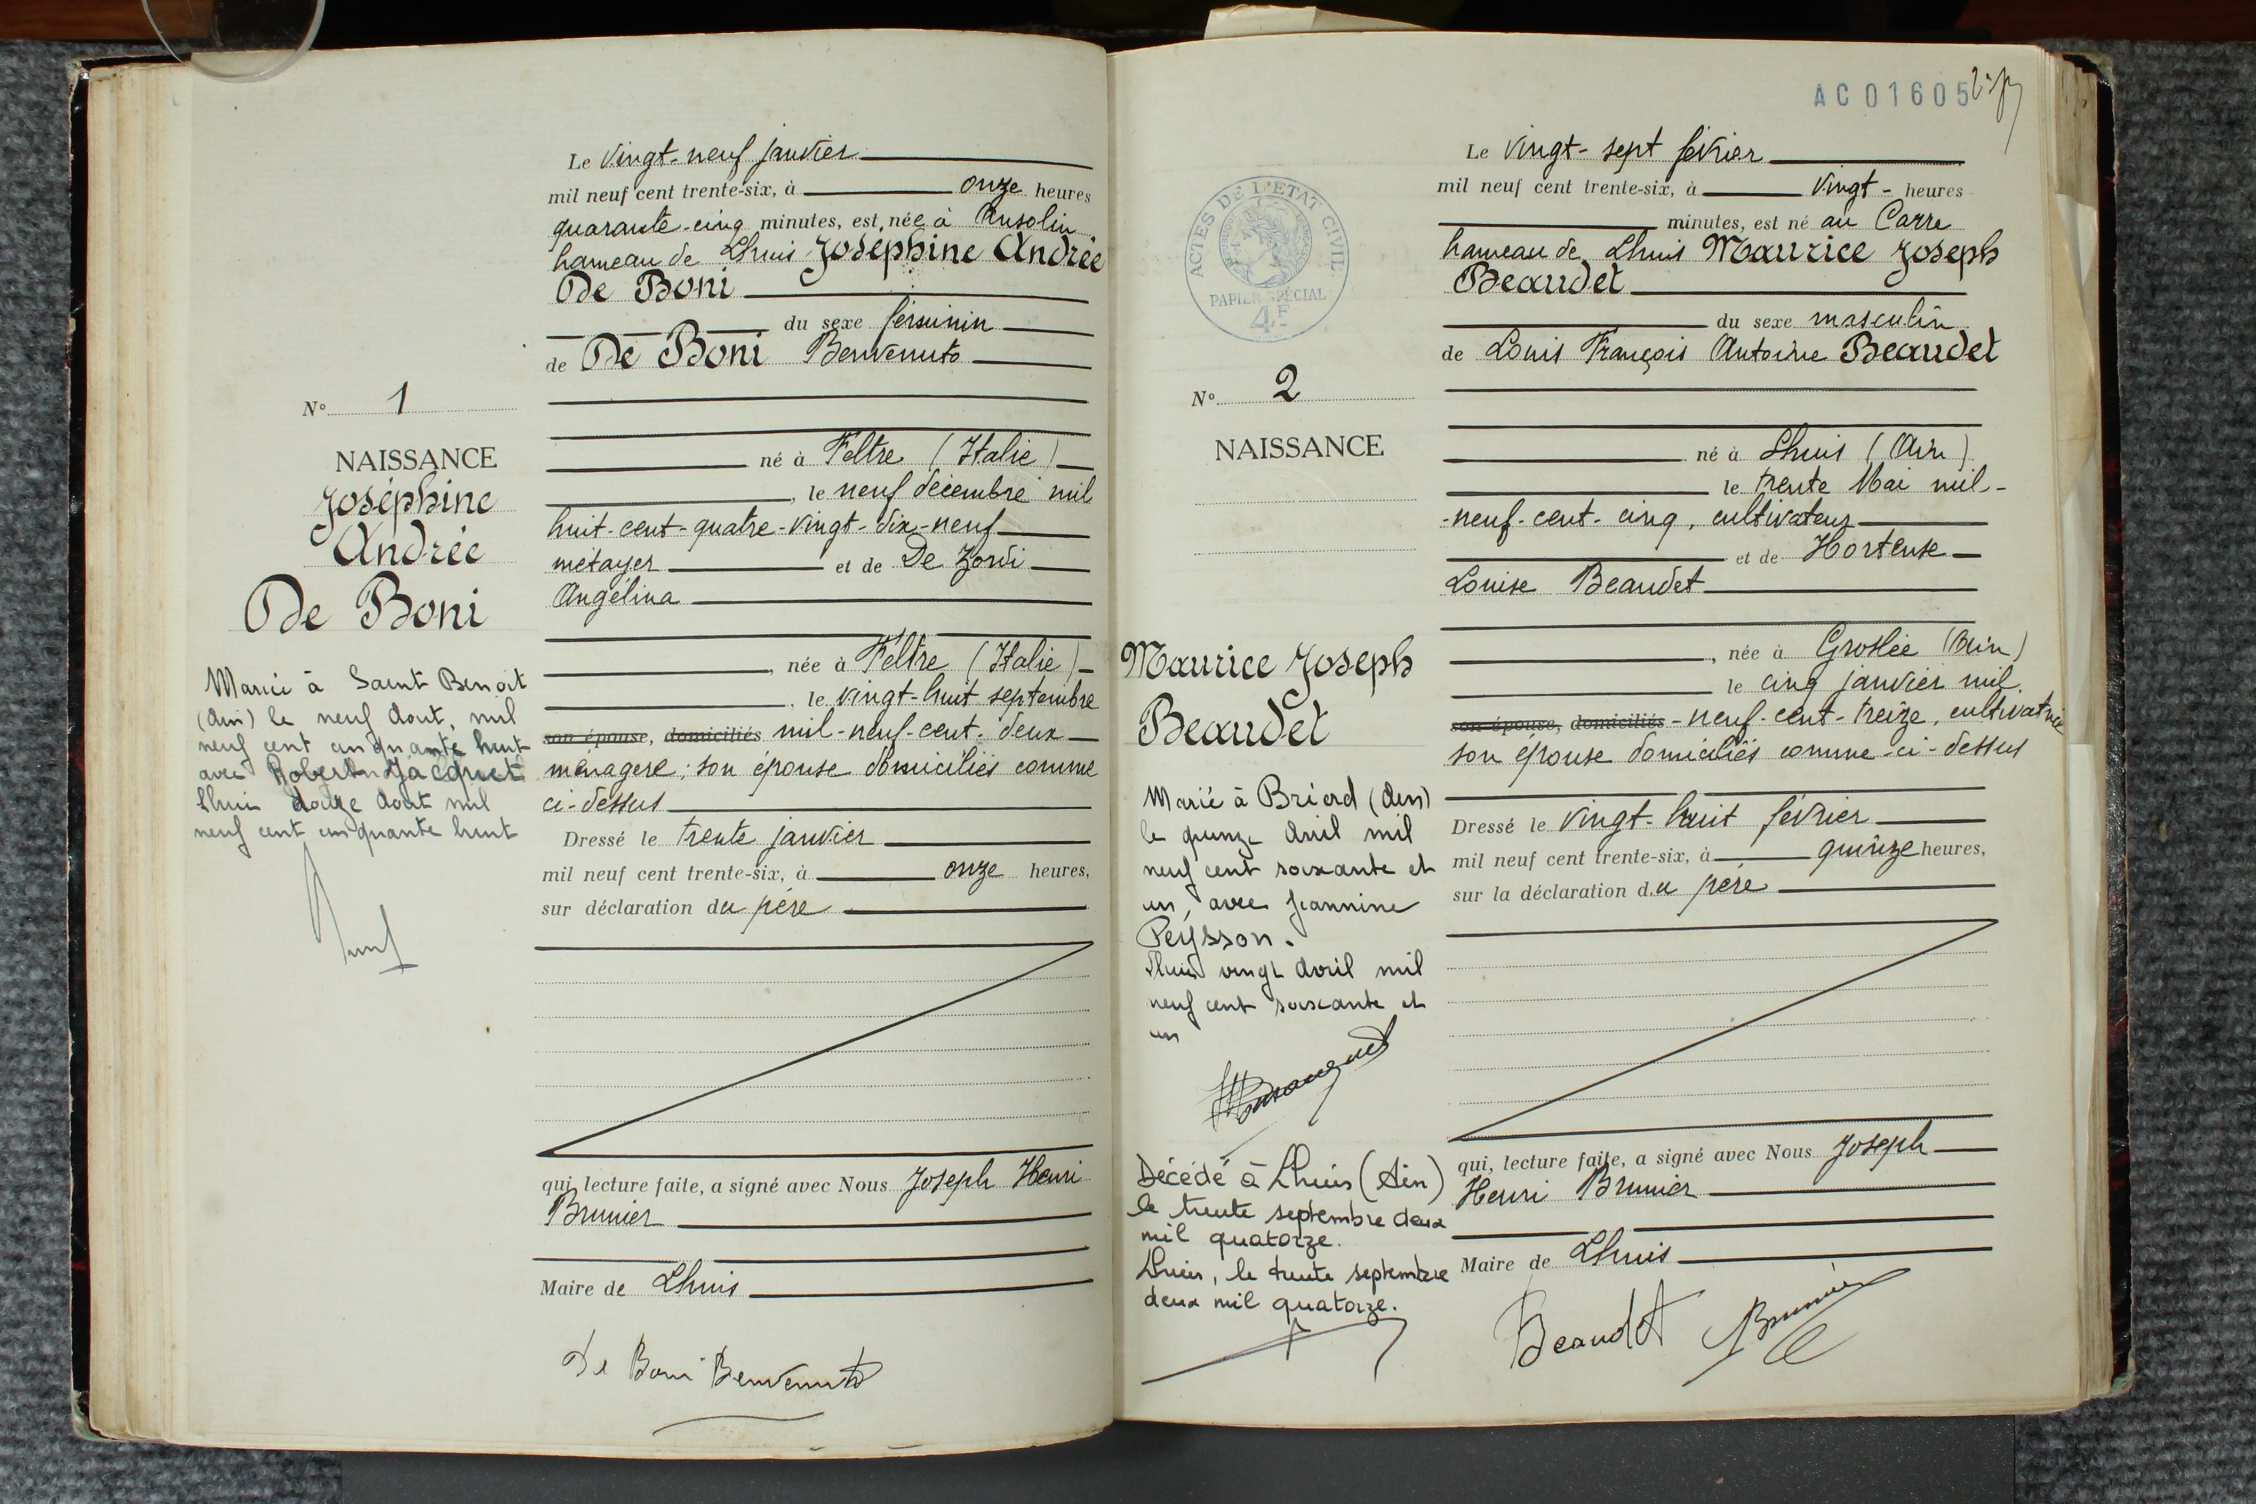 Le vingt-neuf janvier
mil neuf cent trente-six, à onze heures
quarante-cinq minutes, est née à Ansolin
hameau de Lhuis Joséphine Andrée
De Boni
du sexe féminin
de De Boni Benvenuto
né à Feltre (Italie)
, le neuf décembre mil
huit-cent-quatre-vingt-dix-neuf
métayer et de De Zordi
Angélina
, née à Feltre (Italie)
, le vingt-huit septembre
son épouse, domiciliés mil-neuf-cent-deux
ménagère; son épouse domiciliés comme
ci-dessus
Dressé le trente janvier
mil neuf cent trente-six, à onze heures,
sur déclaration du père
qui, lecture faite, a signé avec Nous Joseph Henri
Brunier
Maire de Lhuis
De Boni Benvenuto
N° 1
NAISSANCE
Joséphine
Andrée
De Boni
Mariée à Saint Benoit
(Ain) le neuf Aout, mil
neuf cent cinquante huit
avec Robert Jacquet
Lhuis douze Aout mil
neuf cent cinquante huit
AC01605
ACTES DE L'ETAT CIVIL
PAPIER SPÉCIAL
4F
Le vingt-sept février
mil neuf cent trente-six, à vingt- heures
minutes, est né au Carre
hameau de Lhuis Maurice Joseph
Beaudet
du sexe masculin
de Louis François Antoine Beaudet
né à Lhuis (Ain)
le trente Mai mil-
-neuf-cent-cinq, cultivateur
et de Hortense
Louise Beaudet
, née à Groslée (Ain)
le cinq janvier mil
son épouse, domiciliés -neuf-cent-treize, cultivatrice
son épouse domiciliés comme-ci-dessus
Dressé le vingt-huit février
mil neuf cent trente-six, à quinze heures,
sur la déclaration du père
qui, lecture faite, a signé avec Nous Joseph
Henri Brunier
Maire de Lhuis
Beaudet Brunier
N° 2
NAISSANCE
Maurice Joseph
Beaudet
Marié à Briord (Ain)
le quinze Avril mil
neuf cent soixante et
un, avec Jeannine
Peysson.
Lhuis vingt Avril mil
neuf cent soixante et
un
Décédé à Lhuis (Ain)
le trente septembre deux
mil quatorze.
Lhuis, le trente septembre
deux mil quatorze.